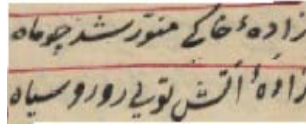 زادهٔ خاکے منور شد چو ماه
زادهٔ آتش توئی رو رو سیاه